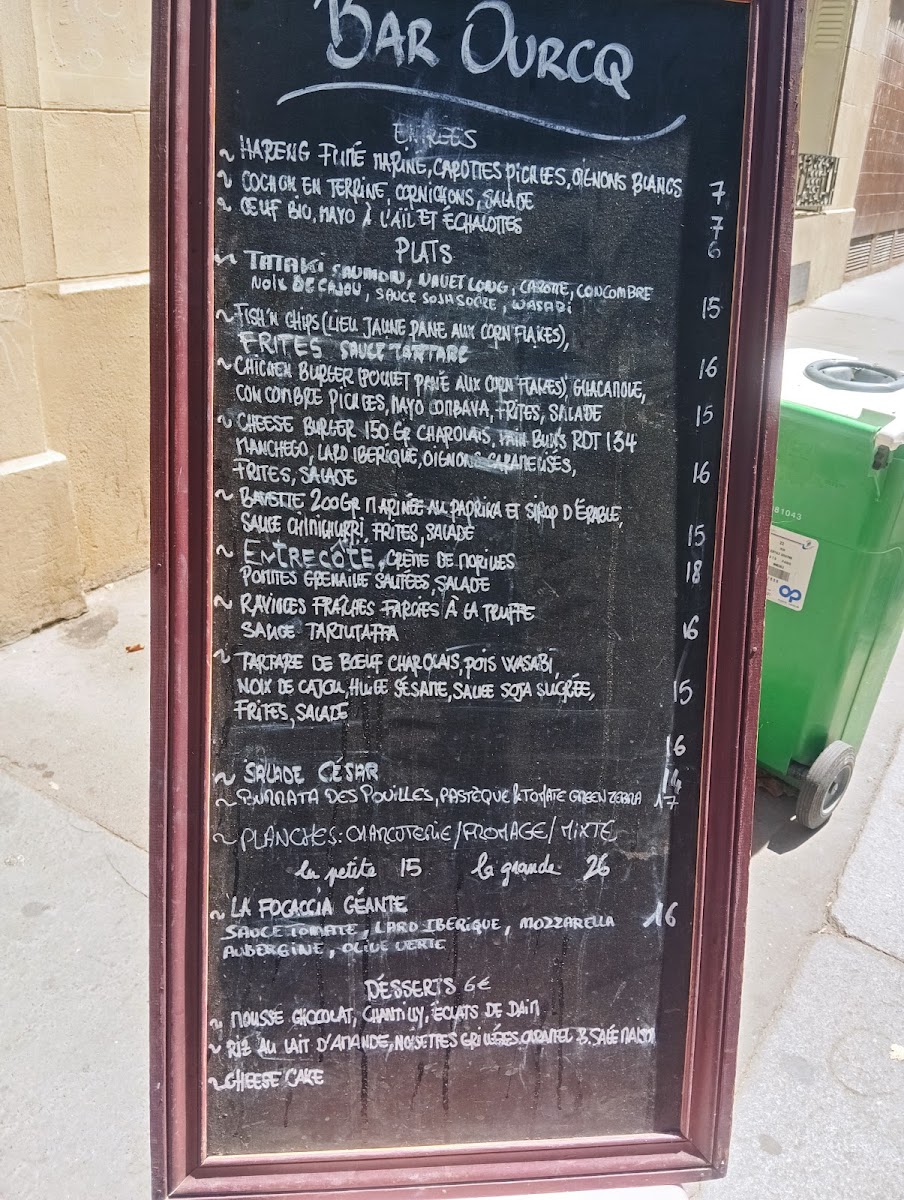 BAR OURCQ
ENTRÉES
~ HARENG FUMÉ MARINÉ, CAROTTES PICKLES, OIGNONS BLANCS 7
~ COCHON EN TERRINE, CORNICHONS, SALADE 7
~ ŒUF BIO, MAYO À L'AIL ET ÉCHALOTTES 6
PLATS
~ TATAKI SAUMON, NAVET LONG, CAROTTE, CONCOMBRE
NOIX DE CAJOU, SAUCE SOJA SUCRE, WASABI 15
~ FISH'N CHIPS (LIEU JAUNE PANE AUX CORN FLAKES),
FRITES SAUCE TARTARE 16
~ CHICKEN BURGER (POULET PANÉ AUX CORN FLAKES) GUACAMOLE,
CONCOMBRE PICKLES, MAYO COMBAVA, FRITES, SALADE 15
~ CHEESE BURGER 150 GR CHAROLAIS, PAIN BUNS ROT 134
MANCHEGO, LARD IBERIQUE, OIGNONS CARAMELISÉS,
FRITES, SALADE 16
~ BAVETTE 200GR MARINÉE AU PAPRIKA ET SIROP D'ÉRABLE,
SAUCE CHIMICHURRI, FRITES, SALADE 15
~ ENTRECÔTE, CRÈME DE MORILLES 18
POMMES GRENAILLE SAUTÉES, SALADE
~ RAVIOLES FRAÎCHES FARCIES À LA TRUFFE
SAUCE TARTUFATTA 16
~ TARTARE DE BŒUF CHAROLAIS, POIS WASABI,
NOIX DE CAJOU, HUILE SÉSAME, SAUCE SOJA SUCRÉE, 15
FRITES, SALADE
16
~ SALADE CÉSAR 14
~ BURRATA DES POUILLES, PASTÈQUE & TOMATE GREEN ZEBRA 17
~ PLANCHES: CHARCUTERIE/FROMAGE/MIXTE
la petite 15 la grande 26
~ LA FOCACCIA GÉANTE
SAUCE TOMATE, LARD IBERIQUE, MOZZARELLA 16
AUBERGINE, OLIVE VERTE
DESSERTS 6€
~ MOUSSE CHOCOLAT, CHANTILLY, ÉCLATS DE DAIM
~ RIZ AU LAIT D'AMANDE, NOISETTES GRILLÉES CARAMEL B. SALÉ MAISON
~ CHEESE CAKE
81043